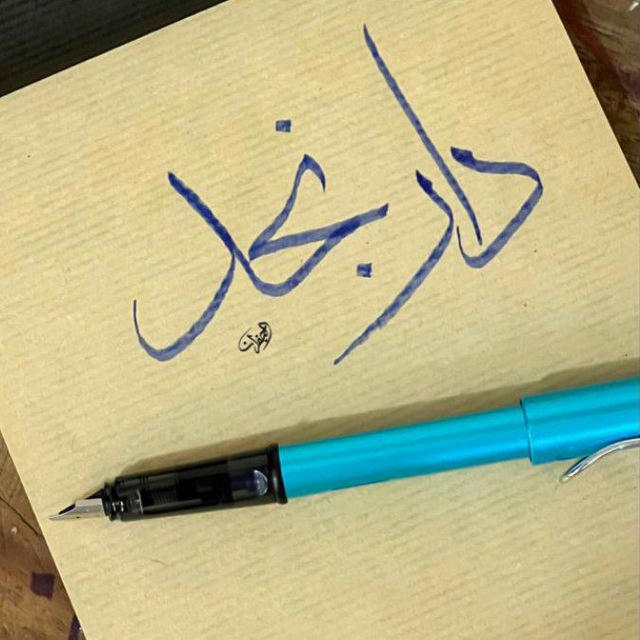 دار بخل